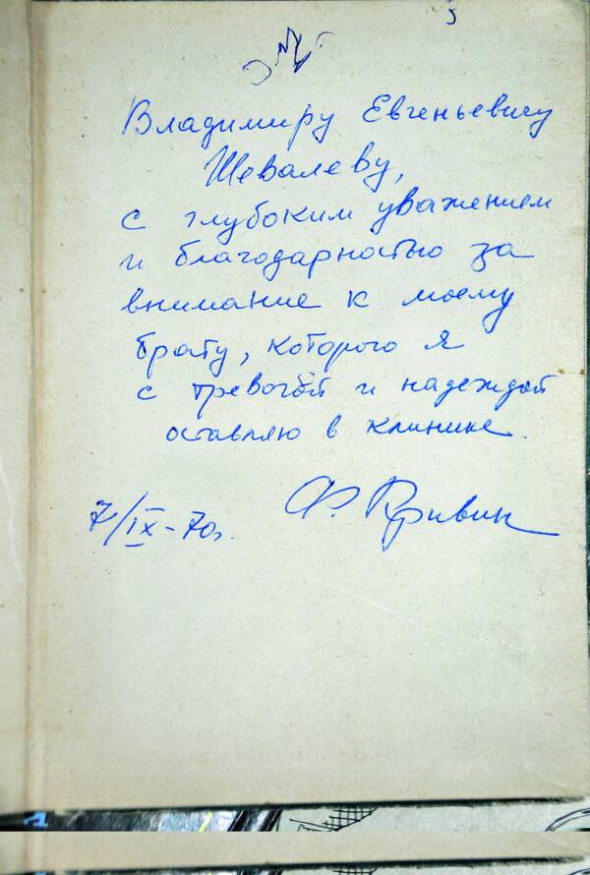 Владимиру Евгеньевичу
Шевалеву,
с глубоким уважением
и благодарностью за
внимание к моему
брату, которого я
с тревогой и надеждой
оставляю в клинике.
Ф. Кривин
7/IX-70г.